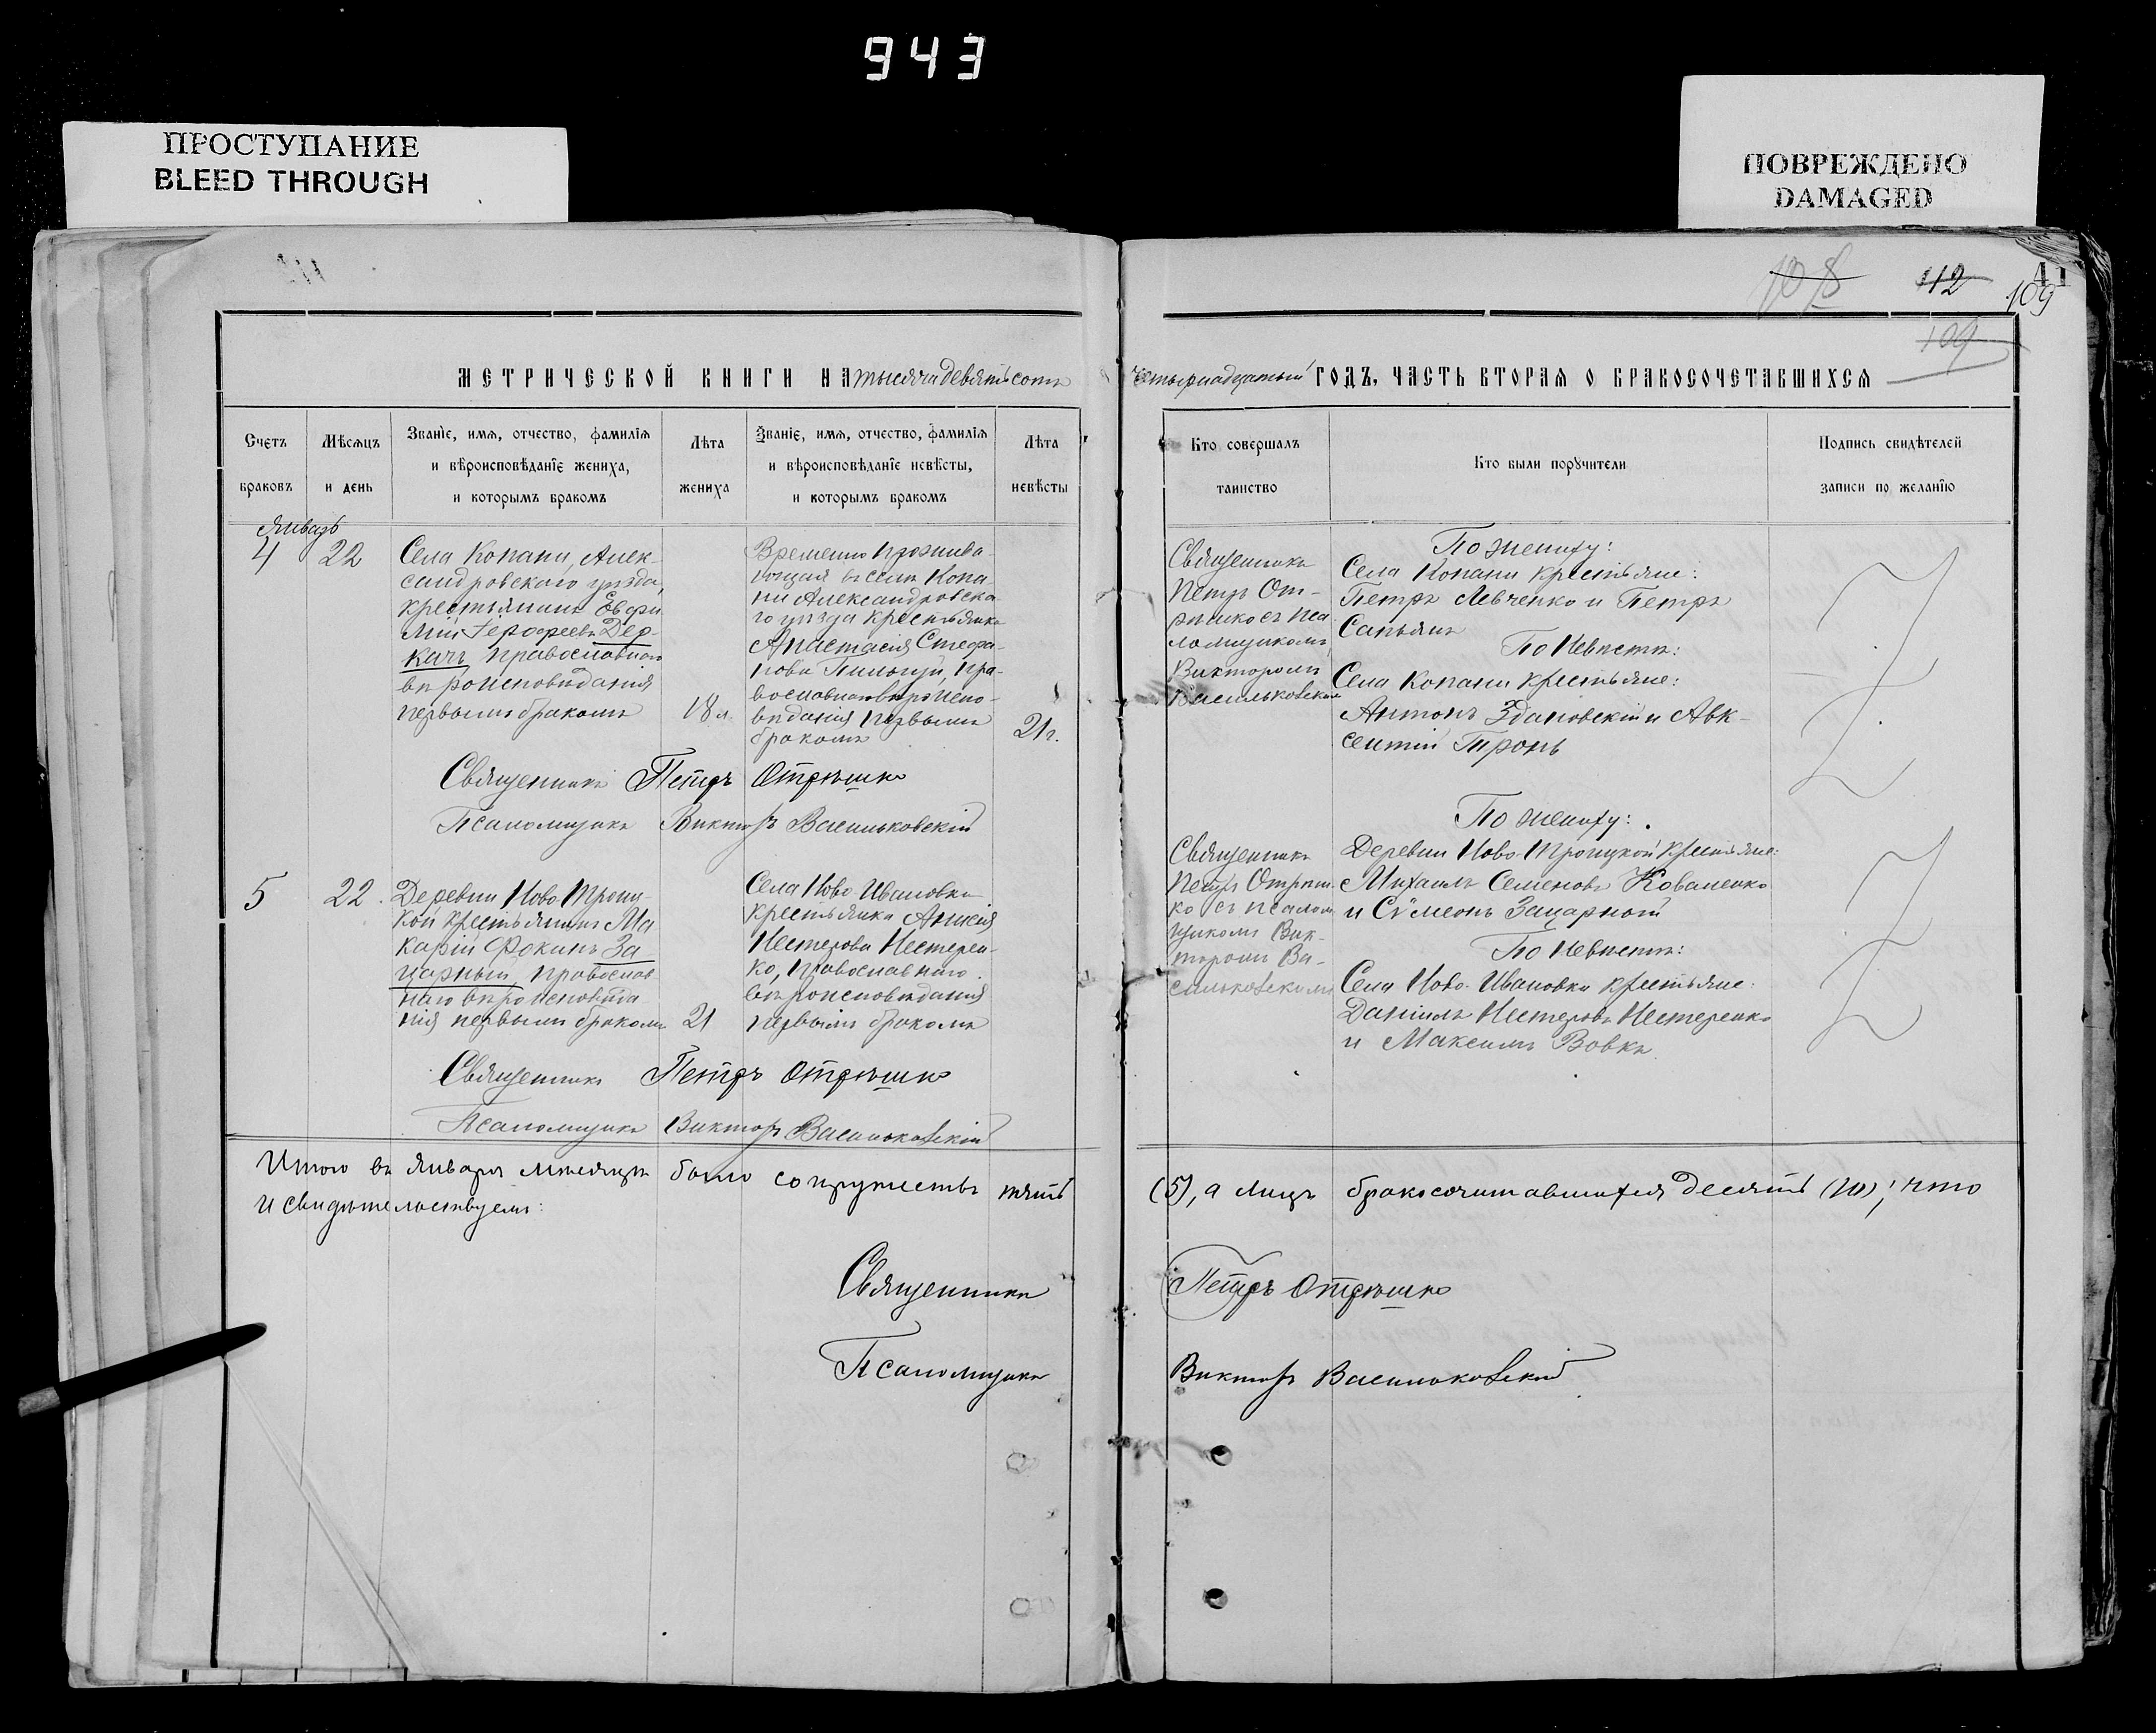 943
ПРОСТУПАНИЕ
BLEED THROUGH
ПОВРЕЖДЕНО
DAMAGED
112
41
109
109
МЕТРИЧЕСКОЙ КНИГИ НА тысяча девятьсотъ
четырнадцатый ГОДЪ, ЧАСТЬ ВТОРАЯ О БРАКОСОЧЕТАВШИХСЯ
Счетъ
браковъ
Мѣсяцъ
и день
Званіе, имя, отчество, фамилія
и вѣроисповѣданіе жениха,
и которымъ бракомъ
Лѣта
жениха
Званіе, имя, отчество, фамилія
и вѣроисповѣданіе невѣсты,
и которымъ бракомъ
Лѣта
невѣсты
Кто совершалъ
таинство
Кто были поручители
Подпись свидѣтелей
записи по желанію
Январь
4
22
Села Копани, Алек-
сандровскаго уѣзда,
крестьянинъ Евфи
мій Іерофеевъ Дер-
качъ православнаго
вѣроисповѣданія
первымъ бракомъ
18 л.
Временно прожива-
ющая въ селѣ Копа
ни Александровска
го уѣзда крестьянка
Анастасія Стефа-
нова Пильгуй, пра-
вославнаго вѣроиспо-
вѣданія первымъ
бракомъ
21 г.
Священникъ
Петръ От-
рѣшко съ пса
ломщикомъ
Викторомъ
Васильковскимъ
По женихѣ:
Села Копани крестьяне:
Петръ Левченко и Петръ
Саньянъ
По невѣстѣ:
Села Копани крестьяне:
Антонъ Здановскій и Авк-
сентій Тронь
Священникъ Петръ Отрѣшко
Псаломщикъ Викторъ Васильковскій
5
22.
Деревни Ново-Троиц-
кой крестьянинъ Ма
карій Фокинъ За
царный, православ
наго вѣроисповѣда
нія первымъ бракомъ
21
Села Ново-Ивановки
крестьянка Анисія
Нестерова Нестерен-
ко, православнаго
вѣроисповѣданія
первымъ бракомъ
Священникъ
Петръ Отрѣш-
ко съ псалом
щикомъ Вик-
торомъ Ва-
сильковскимъ
По женихѣ:
Деревни Ново-Троицкой крестьяне:
Михаилъ Семеновъ Коваленко
и Сѵмеонъ Зацарный
По невѣстѣ:
Села Ново-Ивановки крестьяне:
Даніилъ Нестеровъ Нестеренко
и Максимъ Вовкъ
Священникъ Петръ Отрѣшко
Псаломщикъ Викторъ Васильковскій
Итого въ январѣ мѣсяцѣ было супружествъ пять
(5), а лицъ бракосочитавшихся десять (10); что
и свидѣтельствуемъ:
Священникъ Петръ Отрѣшко
Псаломщикъ Викторъ Васильковскій